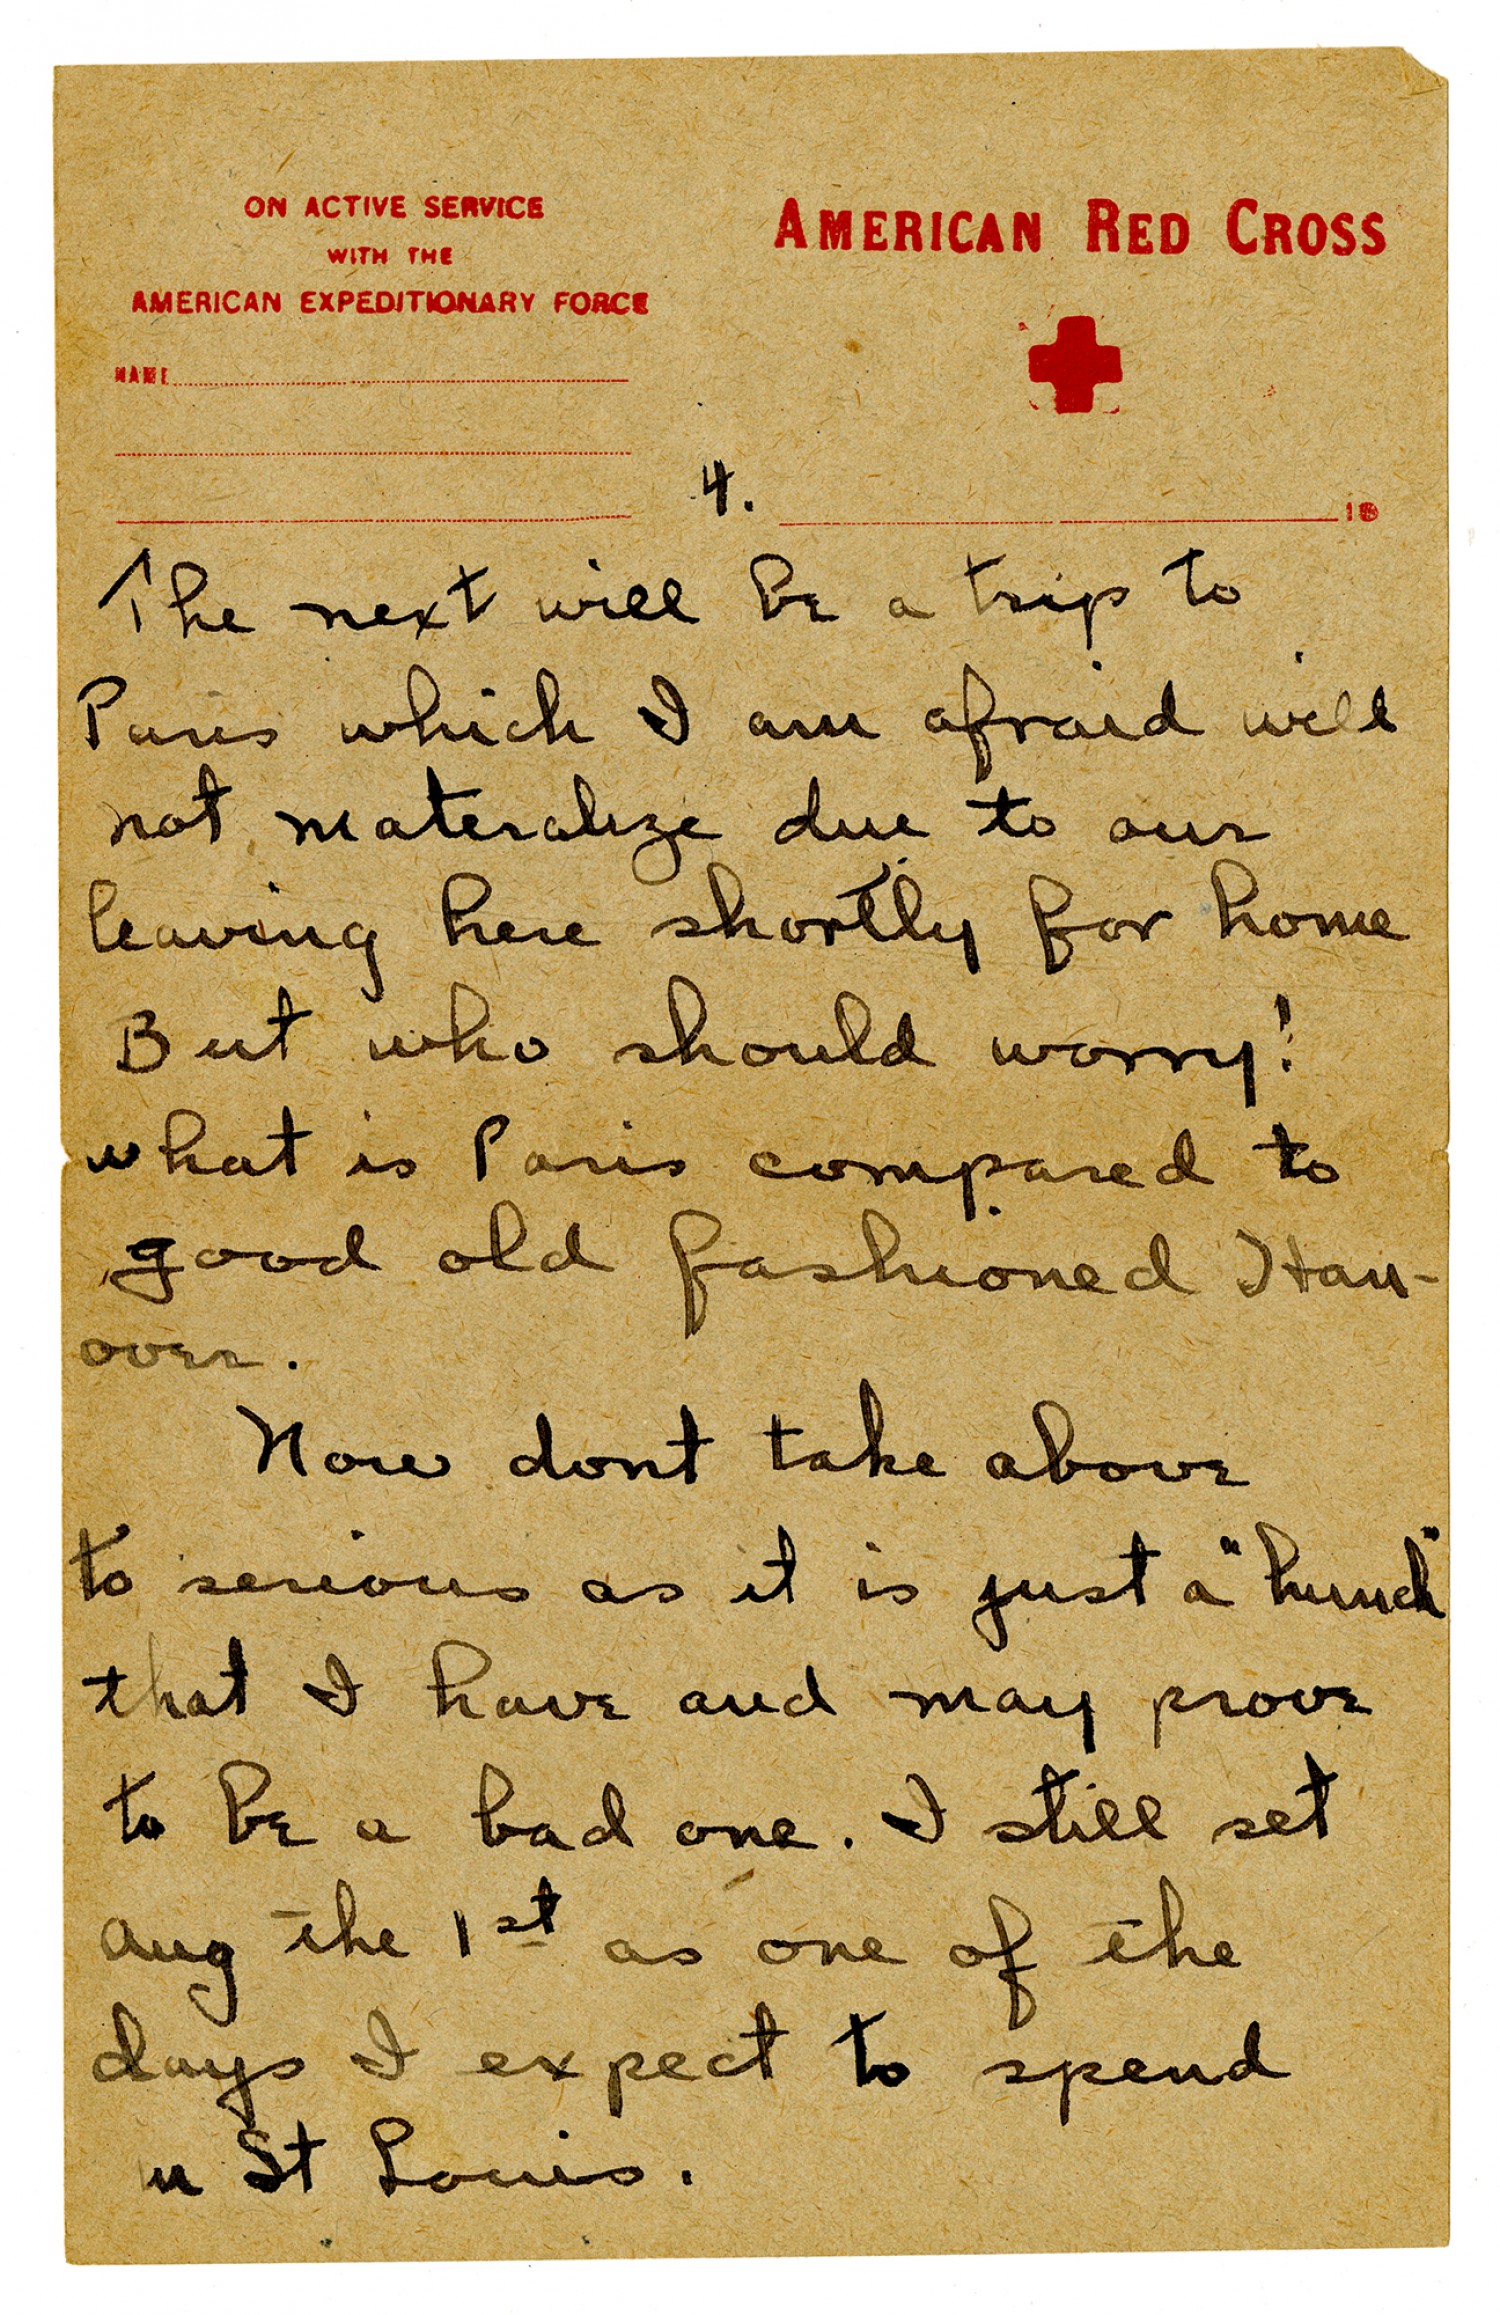 ON ACTIVE SERVICE
WITH THE
AMERICAN EXPEDITIONARY FORCE
NAME
AMERICAN RED CROSS
4.
19
The next will be a trip to
Paris which I am afraid will
not materalize due to our
leaving here shortly for home
But who should worry!
what is Paris compared to
good old fashioned Han-
over.
Now dont take above
to serious as it is just a "hunch"
that I have and may prove
to be a bad one. I still set
Aug the 1st as one of the
days I expect to spend
in St Louis.